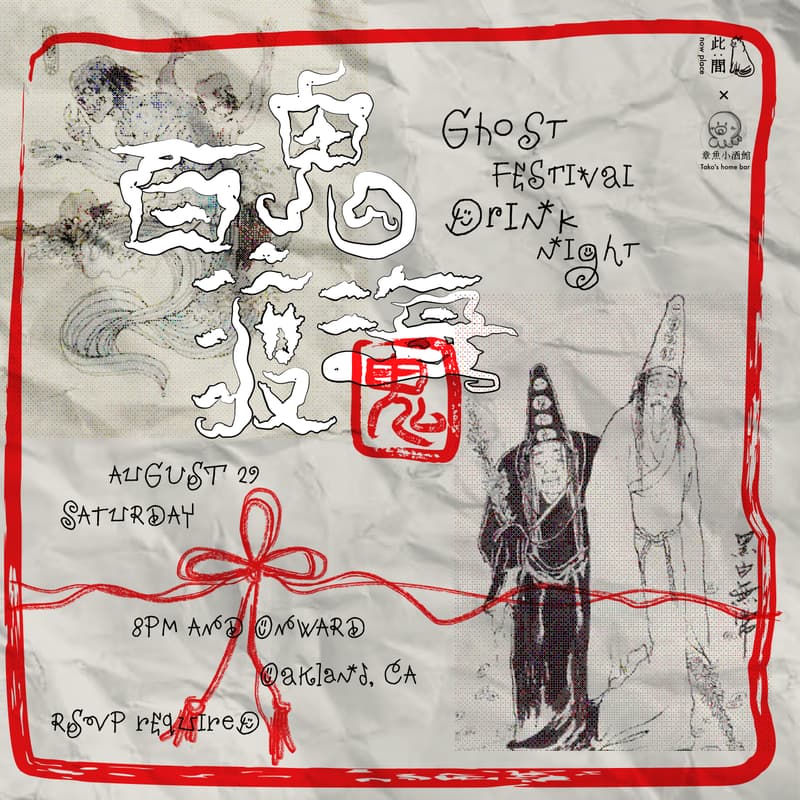 百鬼
渡海
鬼
GhoST
FESTIVal
DrINK
NIghT
此間
now place
×
章魚小酒館
Tako's home bar
AUGUST 29
SATURDAY
8PM AND ONWARD
Oakland, CA
RSVP requireD